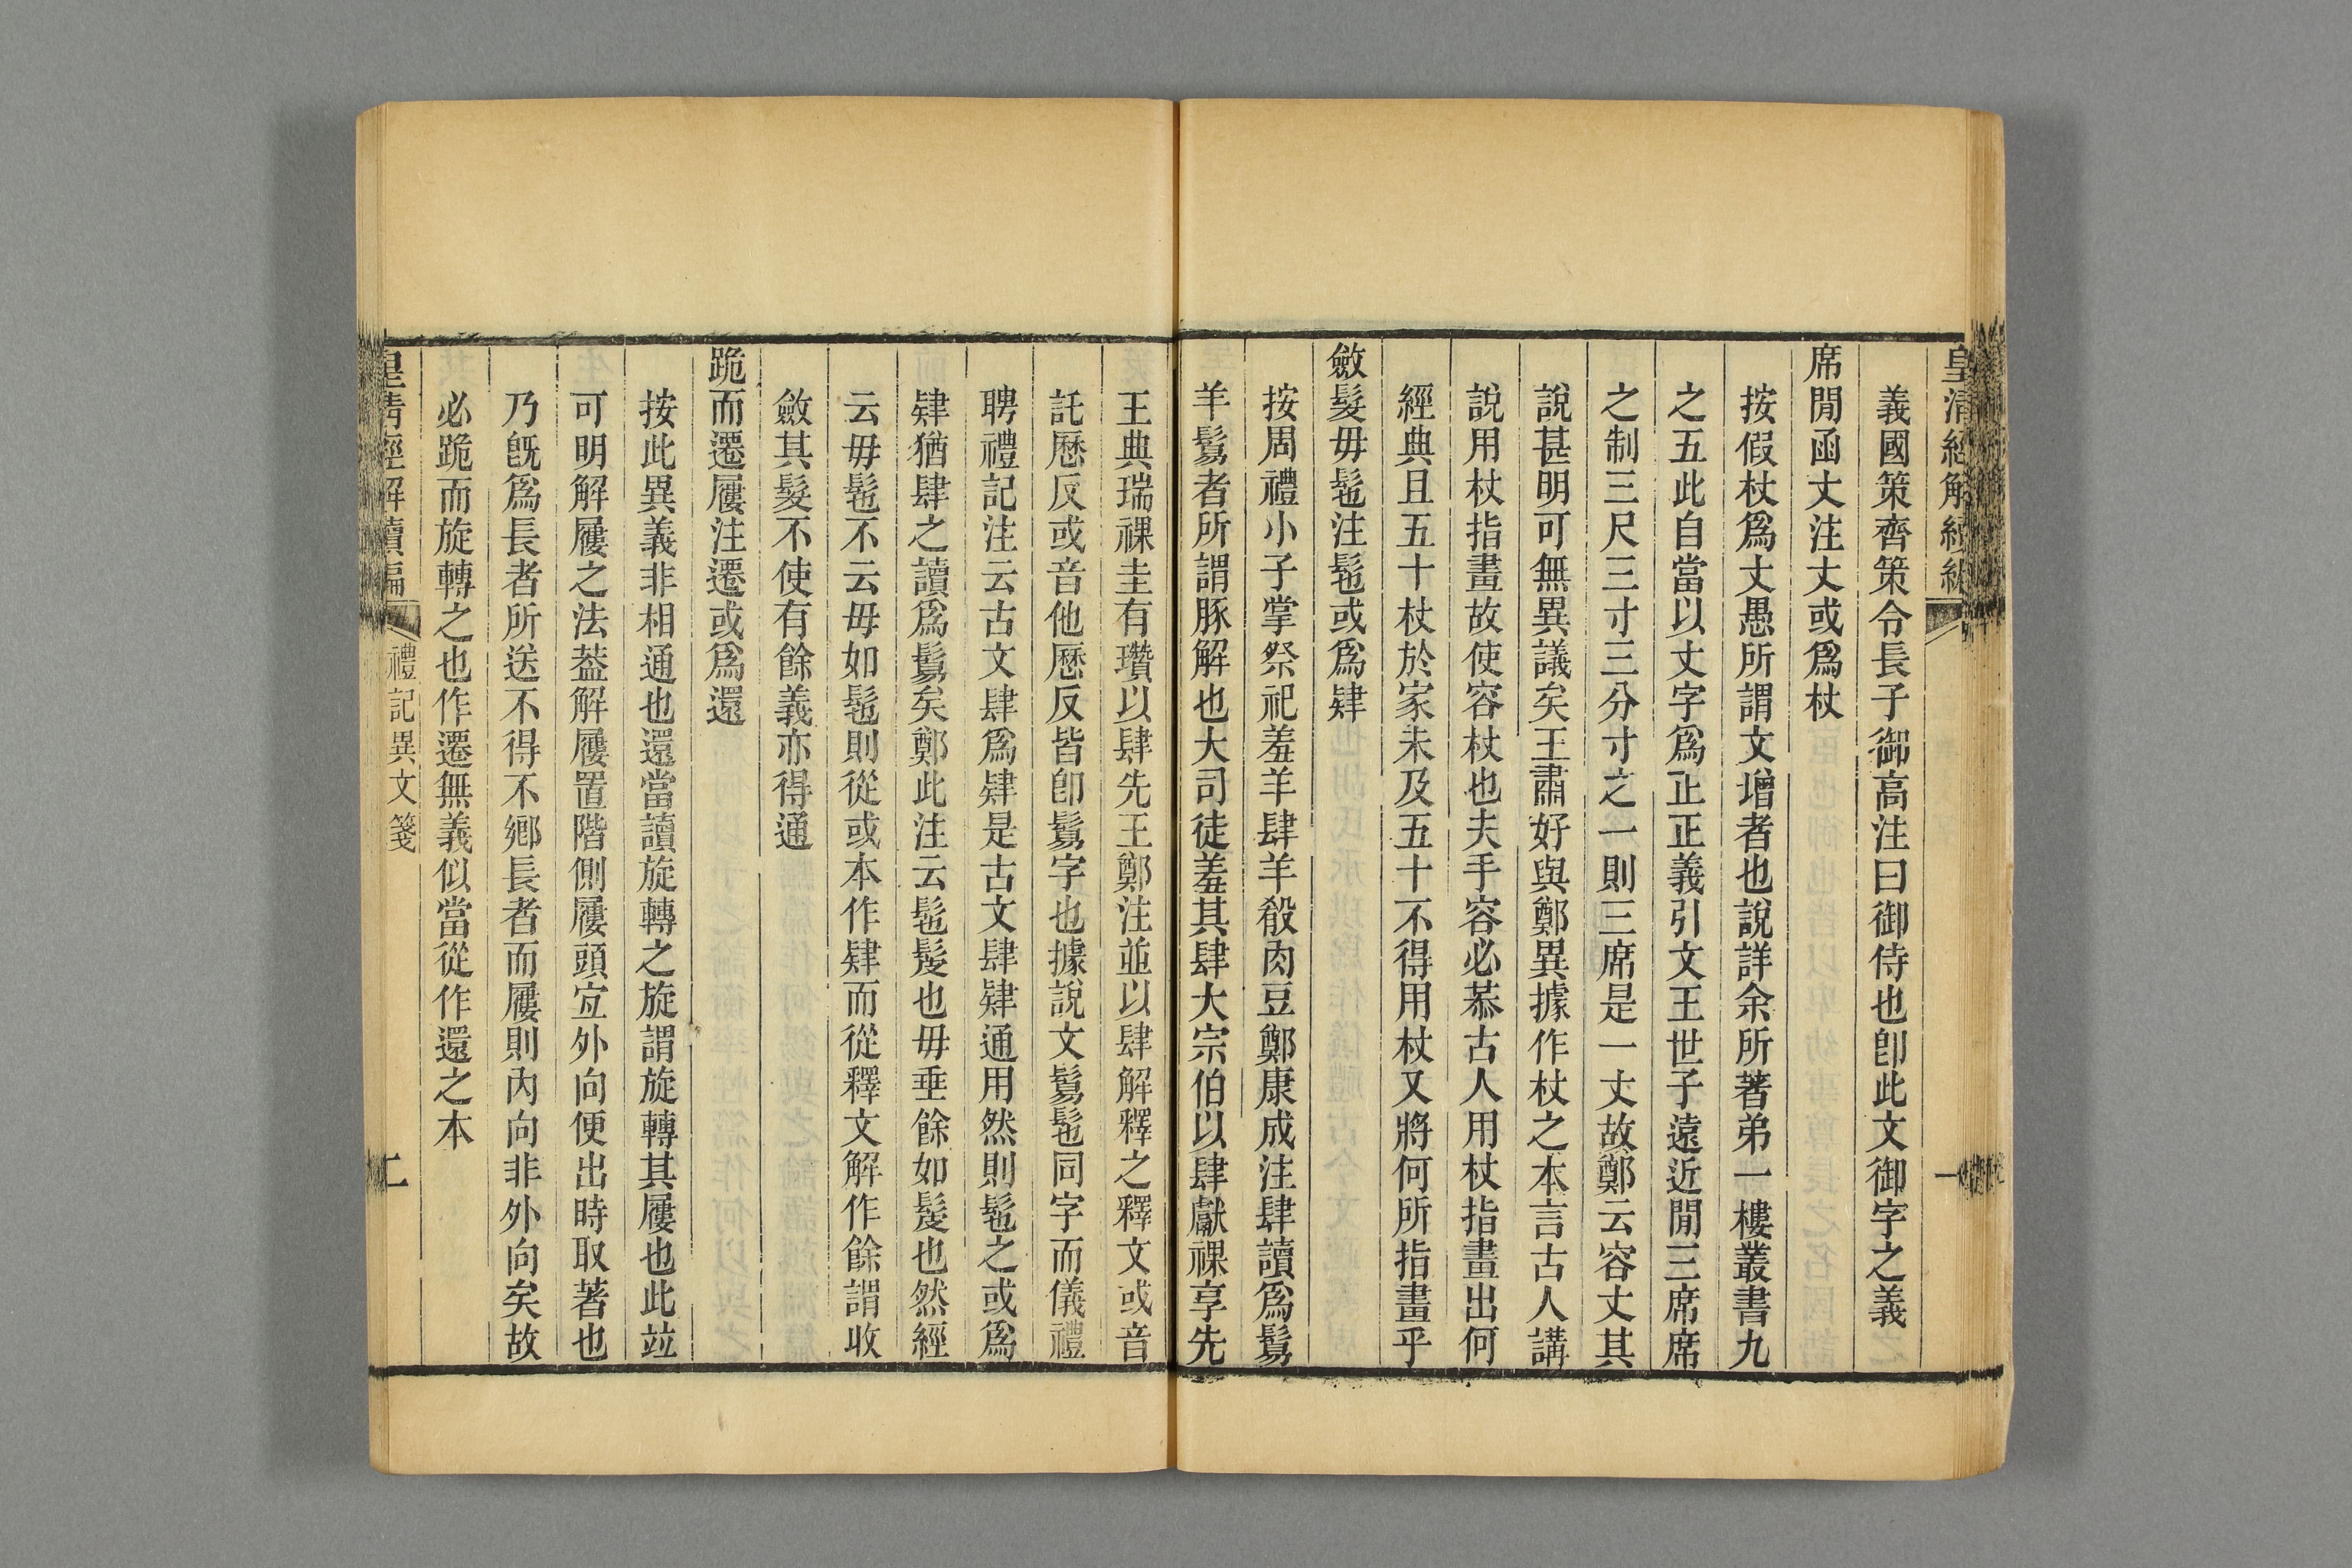 皇清經解續編
一
義國策齊策令長子御高注曰御侍也卽此文御字之義
席閒函丈注丈或爲杖
按假杖爲丈愚所謂文增者也說詳余所著弟一樓叢書九
之五此自當以丈字爲正正義引文王世子遠近閒三席席
之制三尺三寸三分寸之一則三席是一丈故鄭云容丈其
說甚明可無異議矣王肅好與鄭異據作杖之本言古人講
說用杖指畫故使容杖也夫手容必恭古人用杖指畫出何
經典且五十杖於家未及五十不得用杖又將何所指畫乎
斂髮毋髢注髢或爲肄
按周禮小子掌祭祀羞羊肆羊殽肉豆鄭康成注肆讀爲鬄
羊鬄者所謂豚解也大司徒羞其肆大宗伯以肆獻祼享先
王典瑞祼圭有瓚以肆先王鄭注並以肆解釋之釋文或音
託歷反或音他歷反皆卽鬄字也據說文鬄髢同字而儀禮
聘禮記注云古文肆爲肄是古文肆肄通用然則髢之或爲
肄猶肆之讀爲鬄矣鄭此注云髢髲也毋垂餘如髲也然經
云毋髢不云毋如髢則從或本作肄而從釋文解作餘謂收
斂其髮不使有餘義亦得通
跪而遷屨注遷或爲還
按此異義非相通也還當讀旋轉之旋謂旋轉其屨也此竝
可明解屨之法葢解屨置階側屨頭宐外向便出時取著也
乃旣爲長者所送不得不鄉長者而屨則內向非外向矣故
必跪而旋轉之也作遷無義似當從作還之本
皇清經解續編
禮記異文箋
二